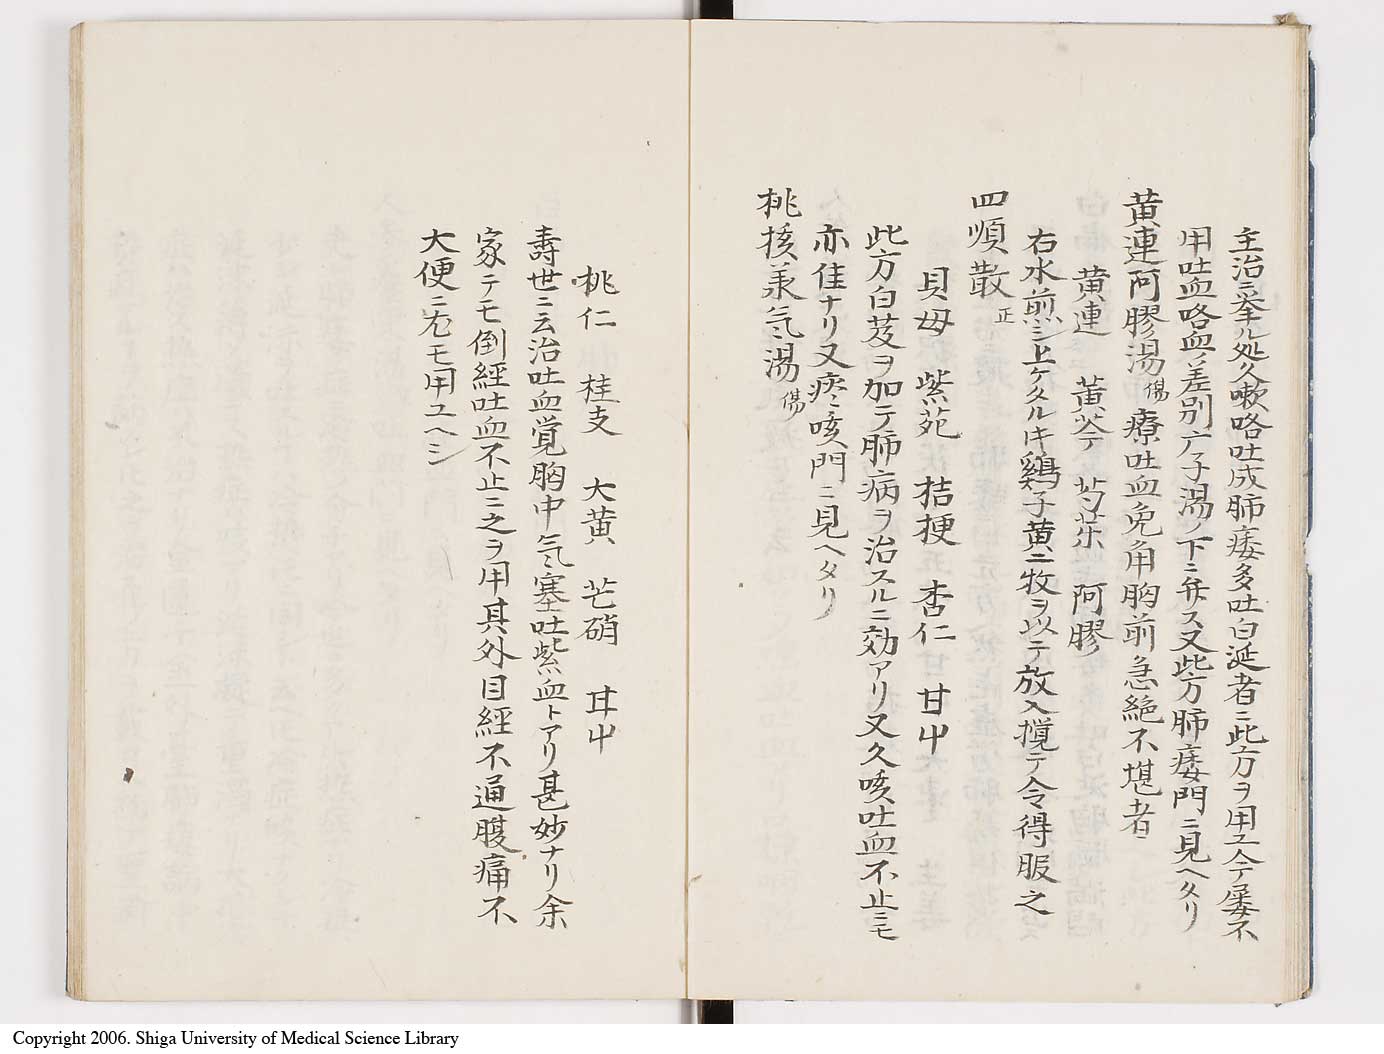 主治ニ挙ル処久嗽咯吐成肺痿多吐白涎者ニ此方ヲ用ユ今テ屡不
用吐血咯血ノ差別六子湯ノ下ニ弁ス又此方肺痿門ニ見ヘタリ
黄連阿膠湯 傷 療吐血兔角胸前急絶不堪者
黄連 黄芩 芍薬 阿膠
右水煎シ上ケタルキ鷄子黄二枚ヲ以テ放入攪テ令得服之
四順散 正
貝母 紫苑 桔梗 杏仁 甘屮
此方白芨ヲ加テ肺病ヲ治スルニ効アリ又久咳吐血不止ニモ
亦佳ナリ又痰咳門ニ見ヘタリ
桃核承气湯 傷
桃仁 桂支 大黄 芒硝 甘屮
壽世ニ云治吐血覚胸中气塞吐紫血トアリ甚妙ナリ余
家テモ倒經吐血不止ニ之ヲ用其外目經不通腹痛不
大便ニ尤モ用ユヘシ
Copyright 2006. Shiga University of Medical Science Library